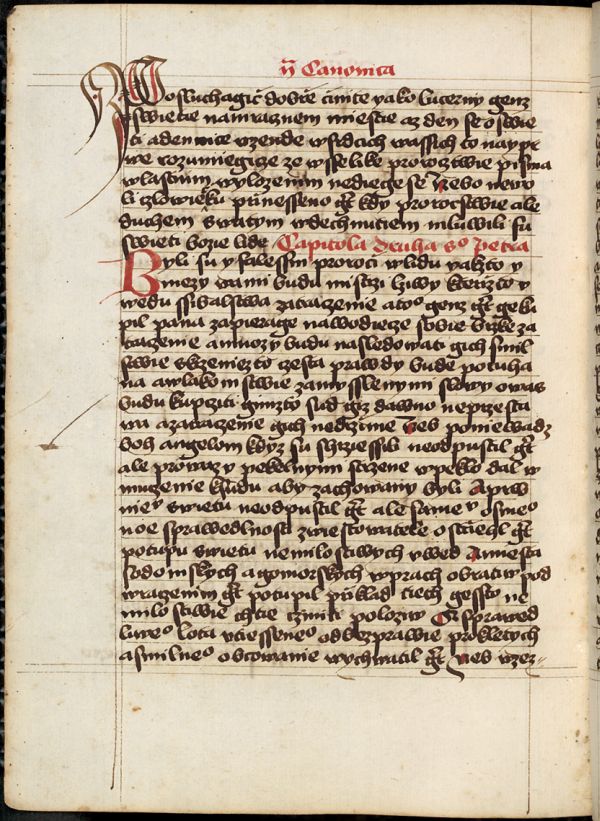 ij Canonica
Wosluchagic dobrze cinite yako lucerny genz
swietie na mraznem miestie az den se oswie
ti a dennice wzende w srdcich wassich to naypr
we rozumiegice ze wsselike proroztwie pisma
wlastnim wylozenim nediege se Nebo newo
li czlowieku prinesseno gt kdy proroctwie ale
duchem swatym wdechnutim mluwili su
swieti bozie lide Capitola druha so Petra
Byli su y falessni proroci w lidu yakzto y
mezy wami budu mistrzi lziwy kterizto y
wedu ssibalstwa zatracenie a toho genz gt geku
pil pana zapieragie nawodiece sobie brzke za
tracenie a mnozy budu nasledowati gich smil
stwie skrzeniezto czesta prawdy bude potupa
na a w lakomstwie zamysslenymi slowy o was
budu kupcziti gimzto sud giz dawno neprzesta
wa a zatracenie gich nedrzime Neb poniewadz
boh angelom kdyz su shrziessili neodpustil gt
ale prowazy pekelnymi strzene w peklo dal w
muczenie k sudu aby zachowany byli A prw
nieo swietu neodpustil gt ale sameo osmeo
noe sprawedlnosti zwiestowatele ostriehl gt
potupu swietu nemilostiwych uwed A miesta
sodomskych a gomorskych w prach obratiw pod
wracenim gt potupil przyklad tiech gessto ne
milostiwie chtie czniti polozil Gi spra wed
liweo lota utiesseneo od bezprawie prokletych
a smilneo obcowanie wychwatil gt Neb wzez